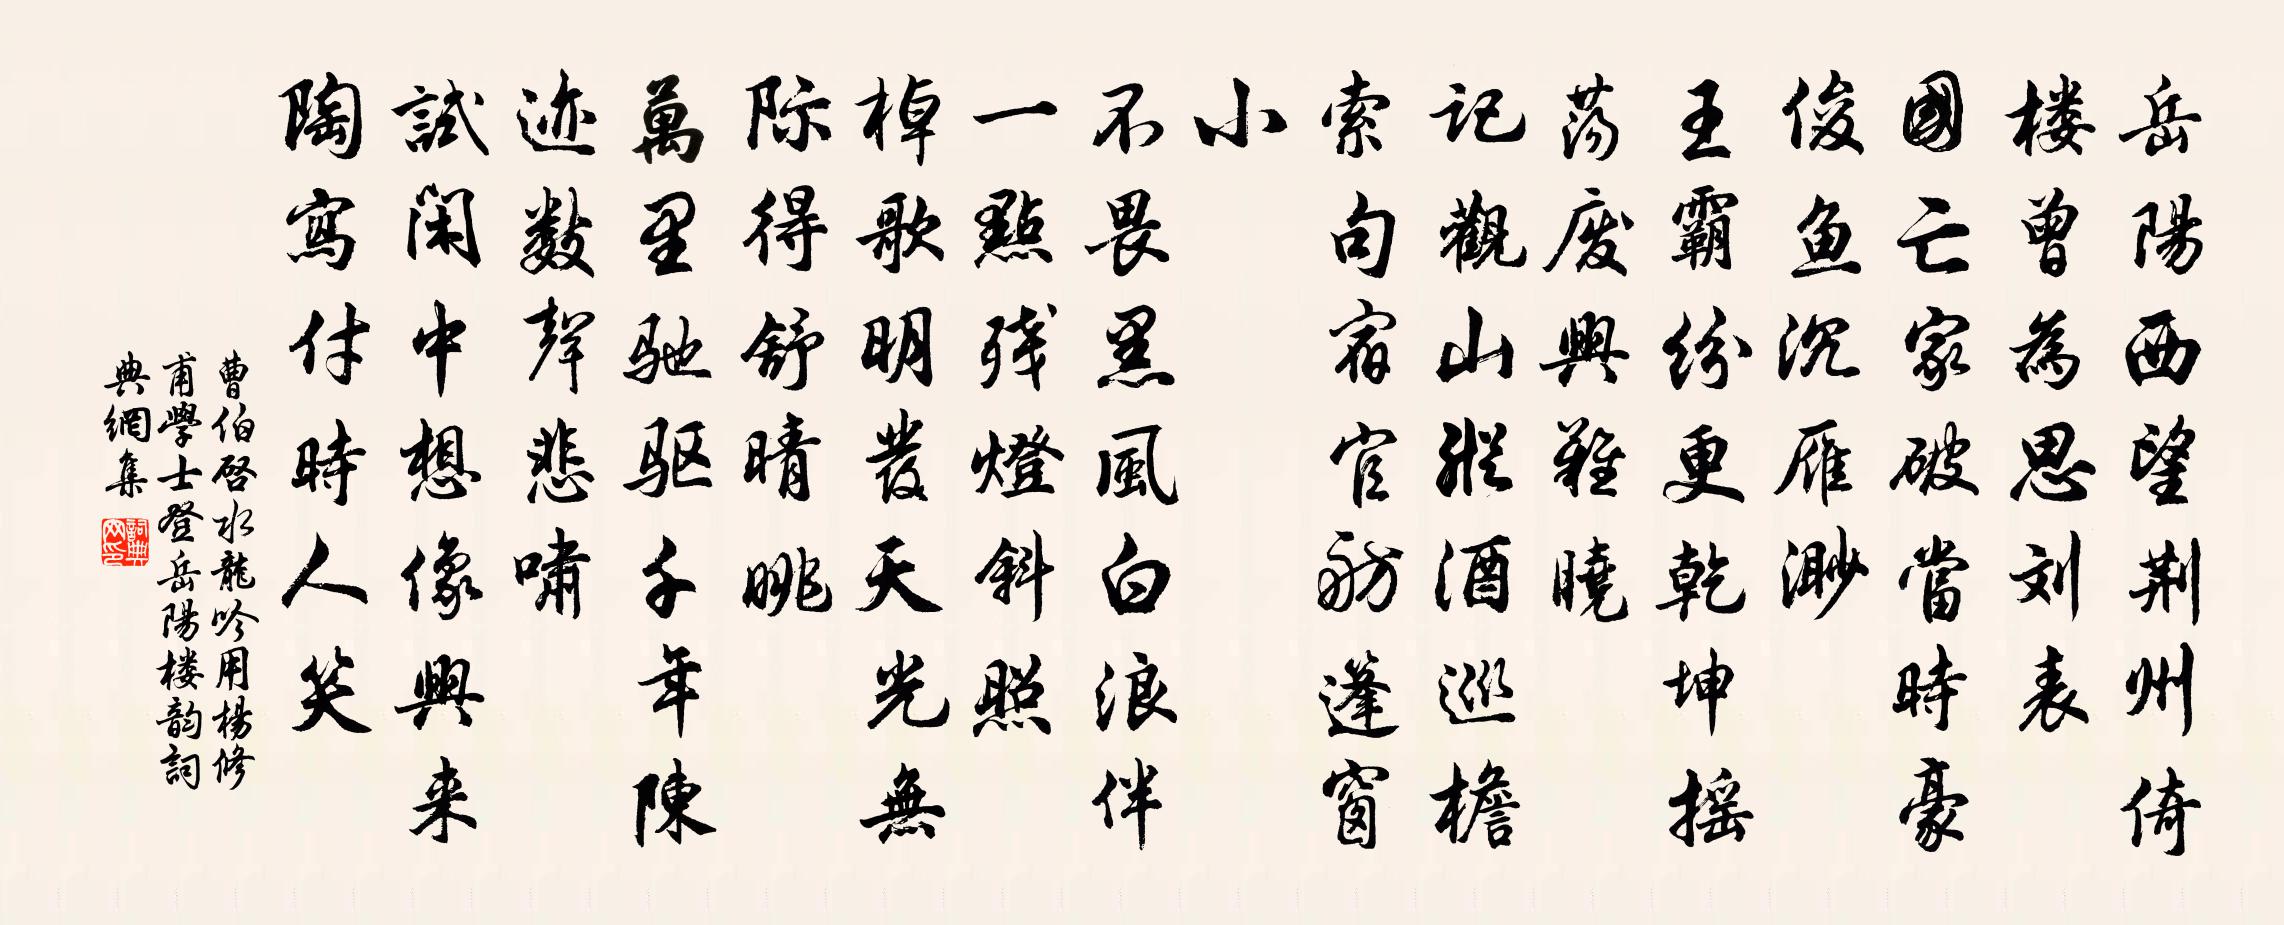 岳陽西望荆州倚
楼曾為思刘表
國亡家破當時豪
俊魚沉雁渺
王霸紛更乾坤摇
荡废興難曉
記觀山縱酒巡檐
索句宿官舫蓬窗
小
不畏黑風白浪伴
一點残燈斜照
棹歌明發天光無
际得舒晴眺
萬里驰驱千年陳
迹数聲悲嘯
試閑中想像興来
陶寫付時人笑
曹伯啓水龍吟用楊修
甫學士登岳陽楼韵詞
典網集
詞典网印